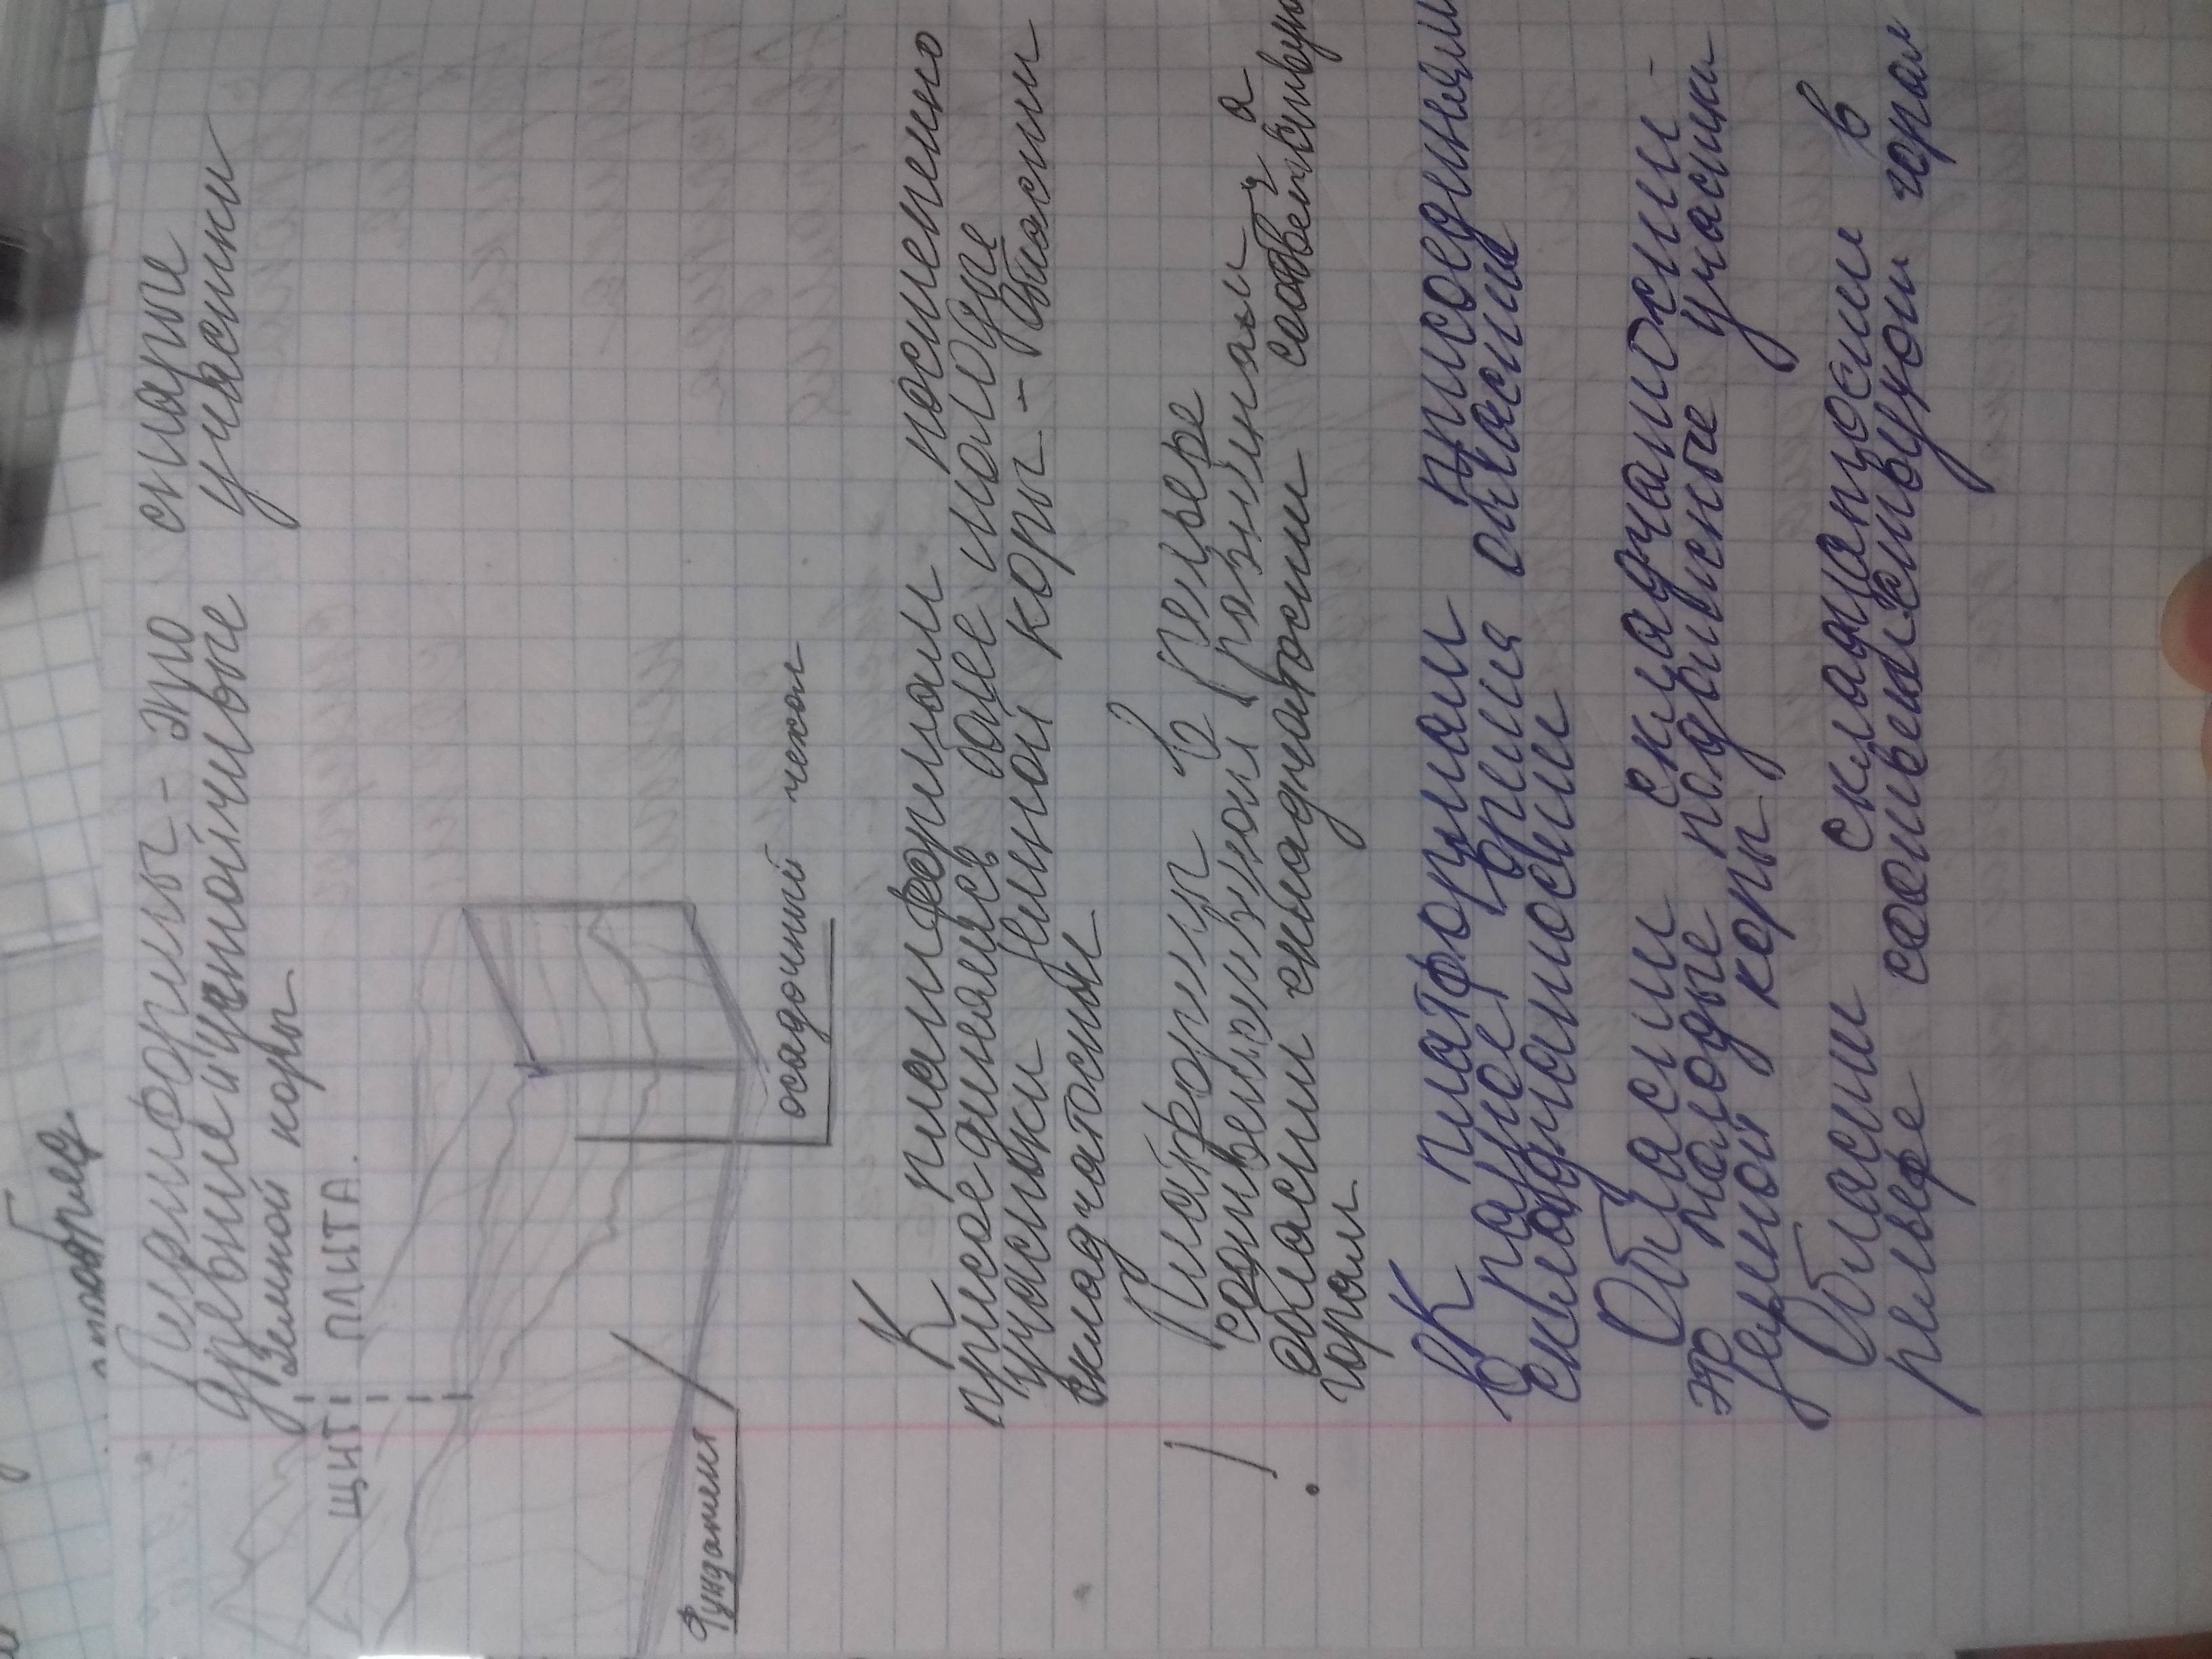 Платформы - это старые
древние и устойчивые участки
земной коры
ЩИТ ПЛИТА.
Фундамент
осадочный чехол
К платформам постепенно
присоединялись более молодые
участки земной коры - области
складчатости
Платформы в рельефе
соответствуют равнинам, а
области складчатости соответствую
горам
К платформам присоединялись
в разное время области
складчатости
Области складчатости
это молодые подвижные участки
земной коры
Области складчатости в
рельефе соответствуют горам